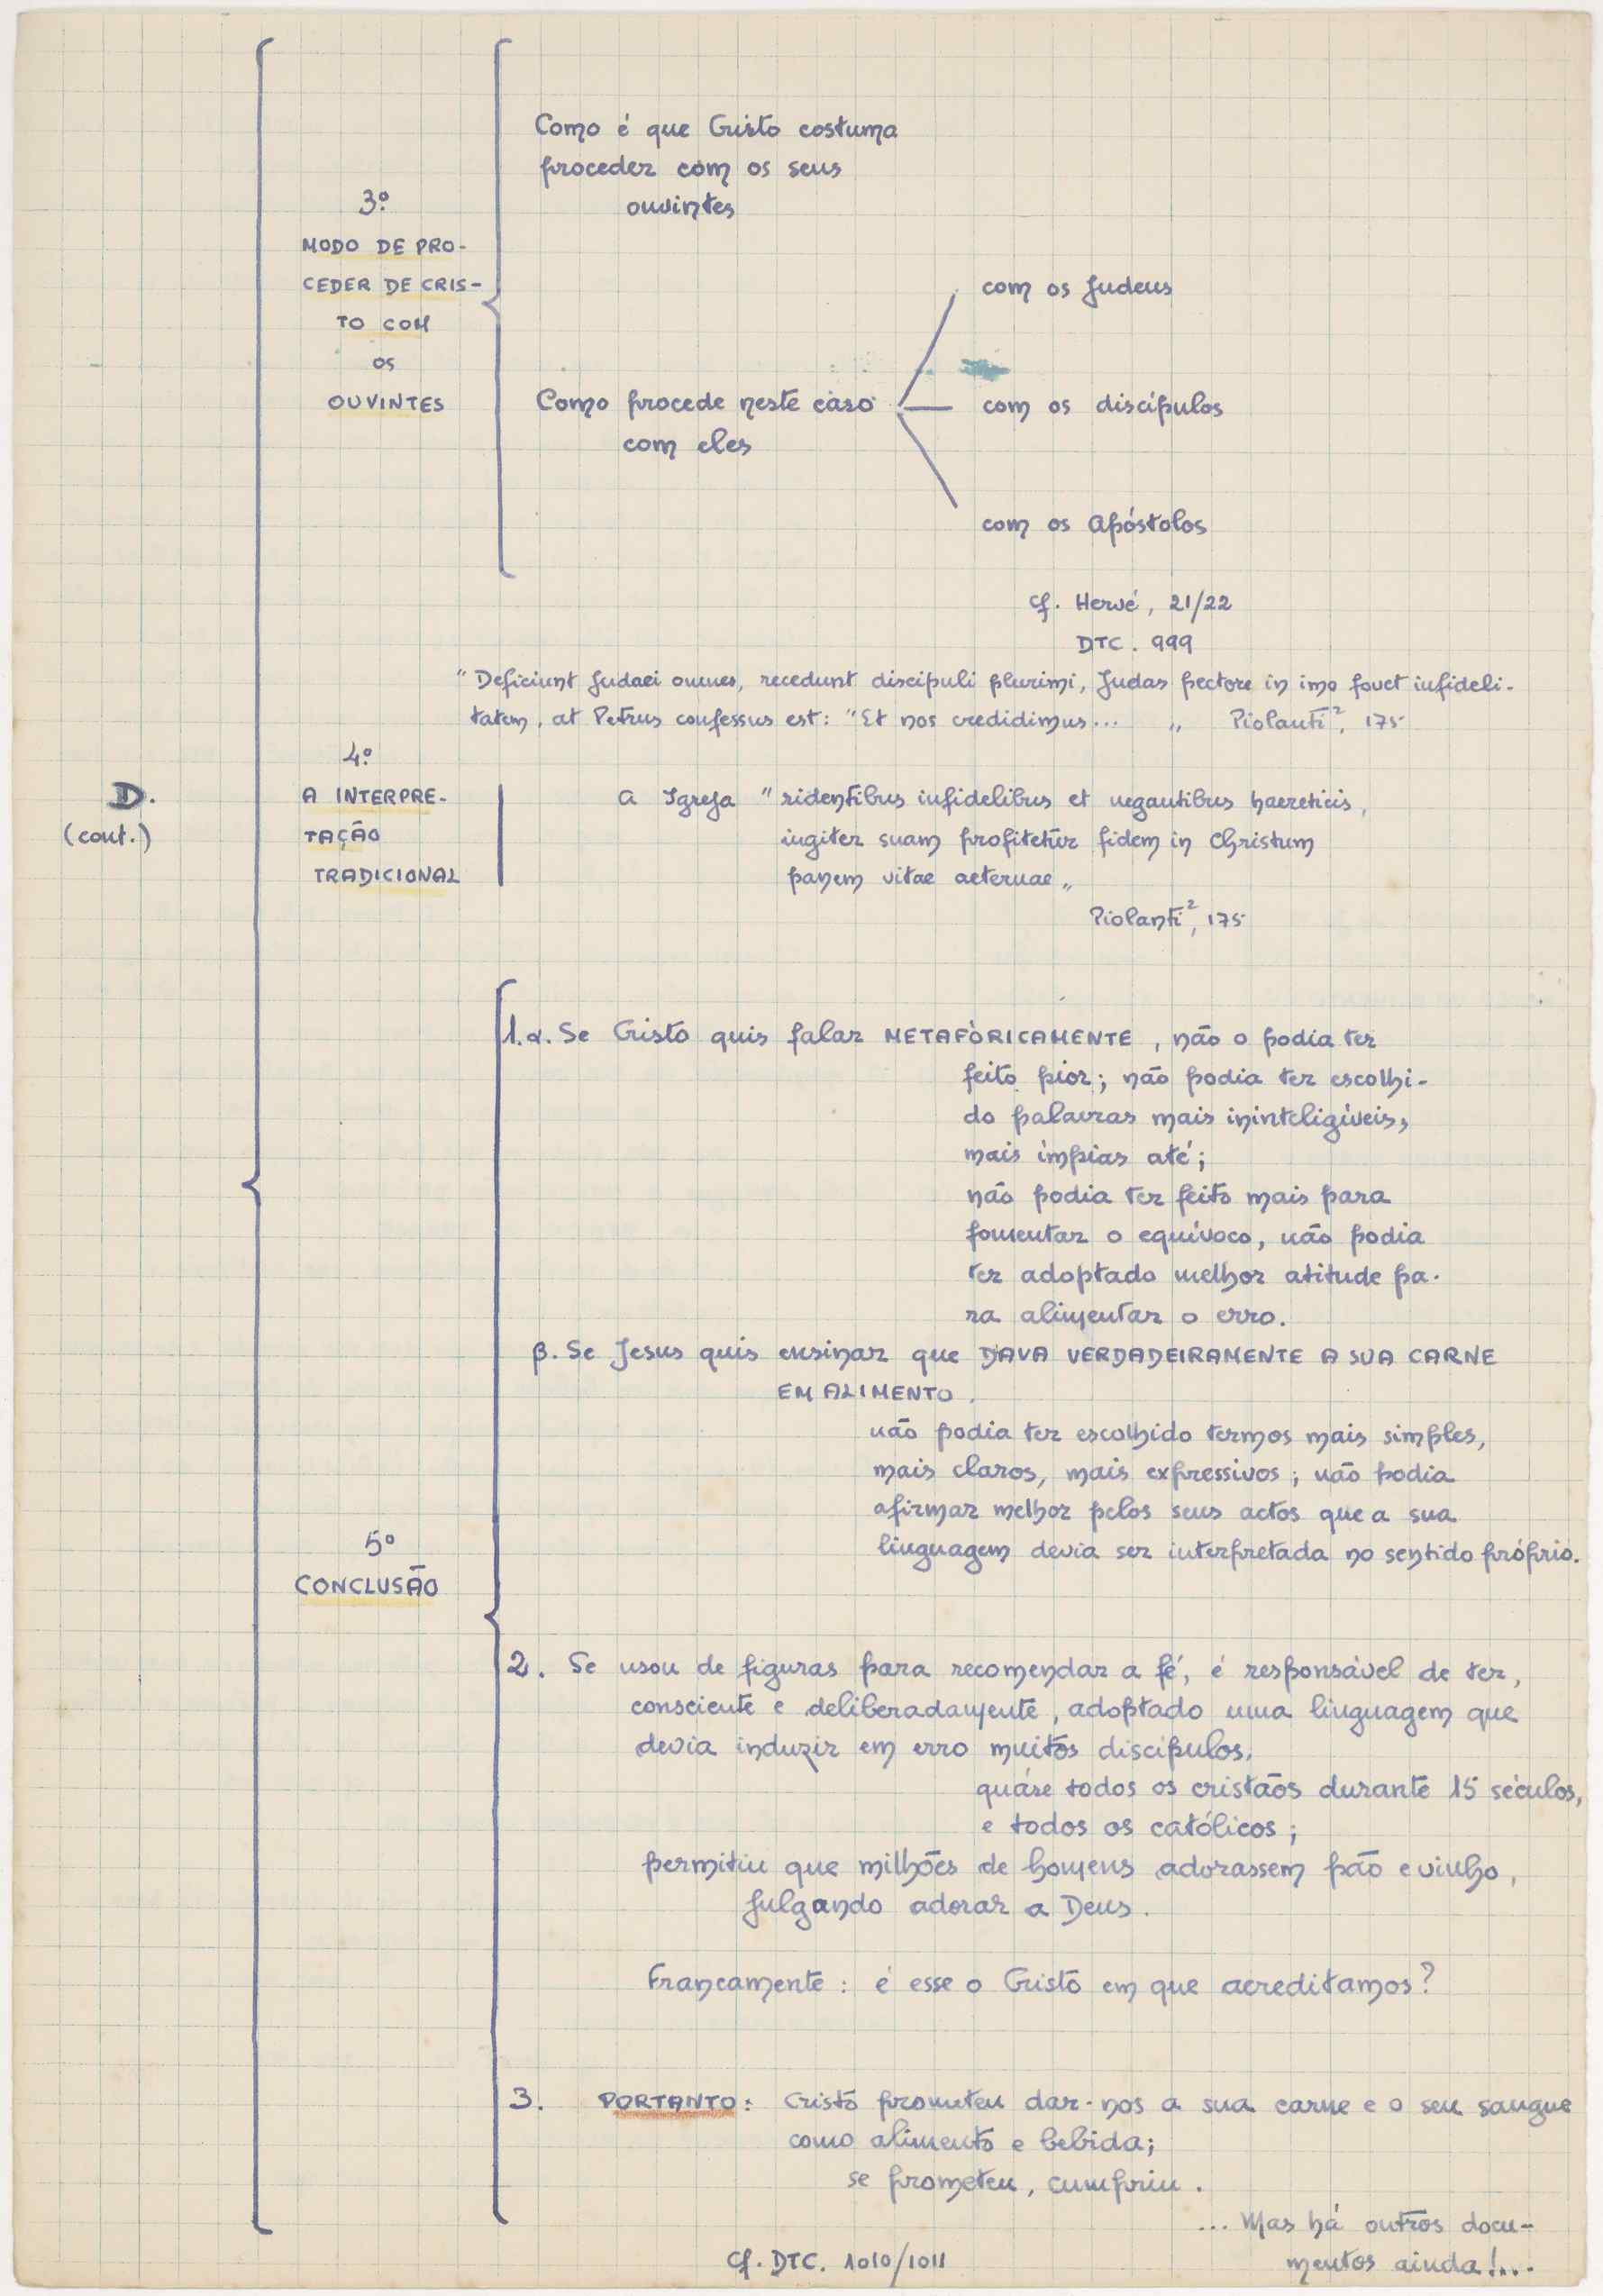 Como é que Cristo costuma
proceder com os seus
ouvintes
3º
MODO DE PRO-
CEDER DE CRIS-
TO COM
OS
OUVINTES
com os Judeus
Como procede neste caso
com eles
com os discípulos
com os Apóstolos
Cf. Hervé, 21/22
DTC. 999
"Deficiunt Judaei omnes, recedunt discipuli plurimi, Judas pectore in imo fovet infideli-
tatem, at Petrus confessus est: "Et nos credidimus... " Piolanti², 175
D.
(cont.)
4º
A INTERPRE-
TAÇÃO
TRADICIONAL
A Igreja "ridentibus infidelibus et negantibus haereticis,
iugiter suam profitetur fidem in Christum
panem vitae aeternae"
Piolanti², 175
5º
CONCLUSÃO
1. α. Se Cristo quis falar METAFÒRICAMENTE, não o podia ter
feito pior; não podia ter escolhi-
do palavras mais ininteligíveis,
mais ímpias até;
não podia ter feito mais para
fomentar o equívoco, não podia
ter adoptado melhor atitude pa-
ra alimentar o erro.
β. Se Jesus quis ensinar que DAVA VERDADEIRAMENTE A SUA CARNE
EM ALIMENTO.
não podia ter escolhido termos mais simples,
mais claros, mais expressivos; não podia
afirmar melhor pelos seus actos que a sua
linguagem devia ser interpretada no sentido próprio.
2. Se usou de figuras para recomendar a fé, é responsável de ter,
consciente e deliberadamente, adoptado uma linguagem que
devia induzir em erro muitos discípulos,
quáse todos os cristãos durante 15 séculos,
e todos os católicos;
permitiu que milhões de homens adorassem pão e vinho,
julgando adorar a Deus.
Francamente: é esse o Cristo em que acreditamos?
3. PORTANTO: Cristo prometeu dar-nos a sua carne e o seu sangue
como alimento e bebida;
se prometeu, cumpriu.
... Mas há outros docu-
mentos ainda!...
Cf. DTC. 1010/1011